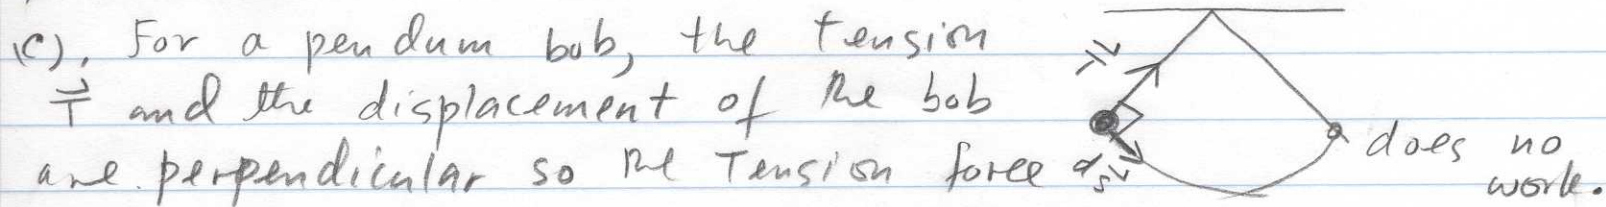 (c). For a pendum bob, the tension
T⃗ and the displacement of the bob
are perpendicular so the Tension force does no
work.
T⃗
ds⃗